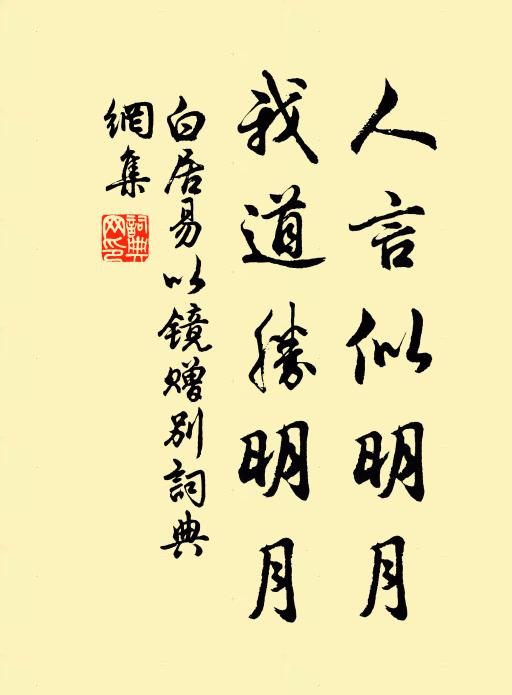 人言似明月
我道勝明月
白居易以镜赠别詞典
網集
詞典网印